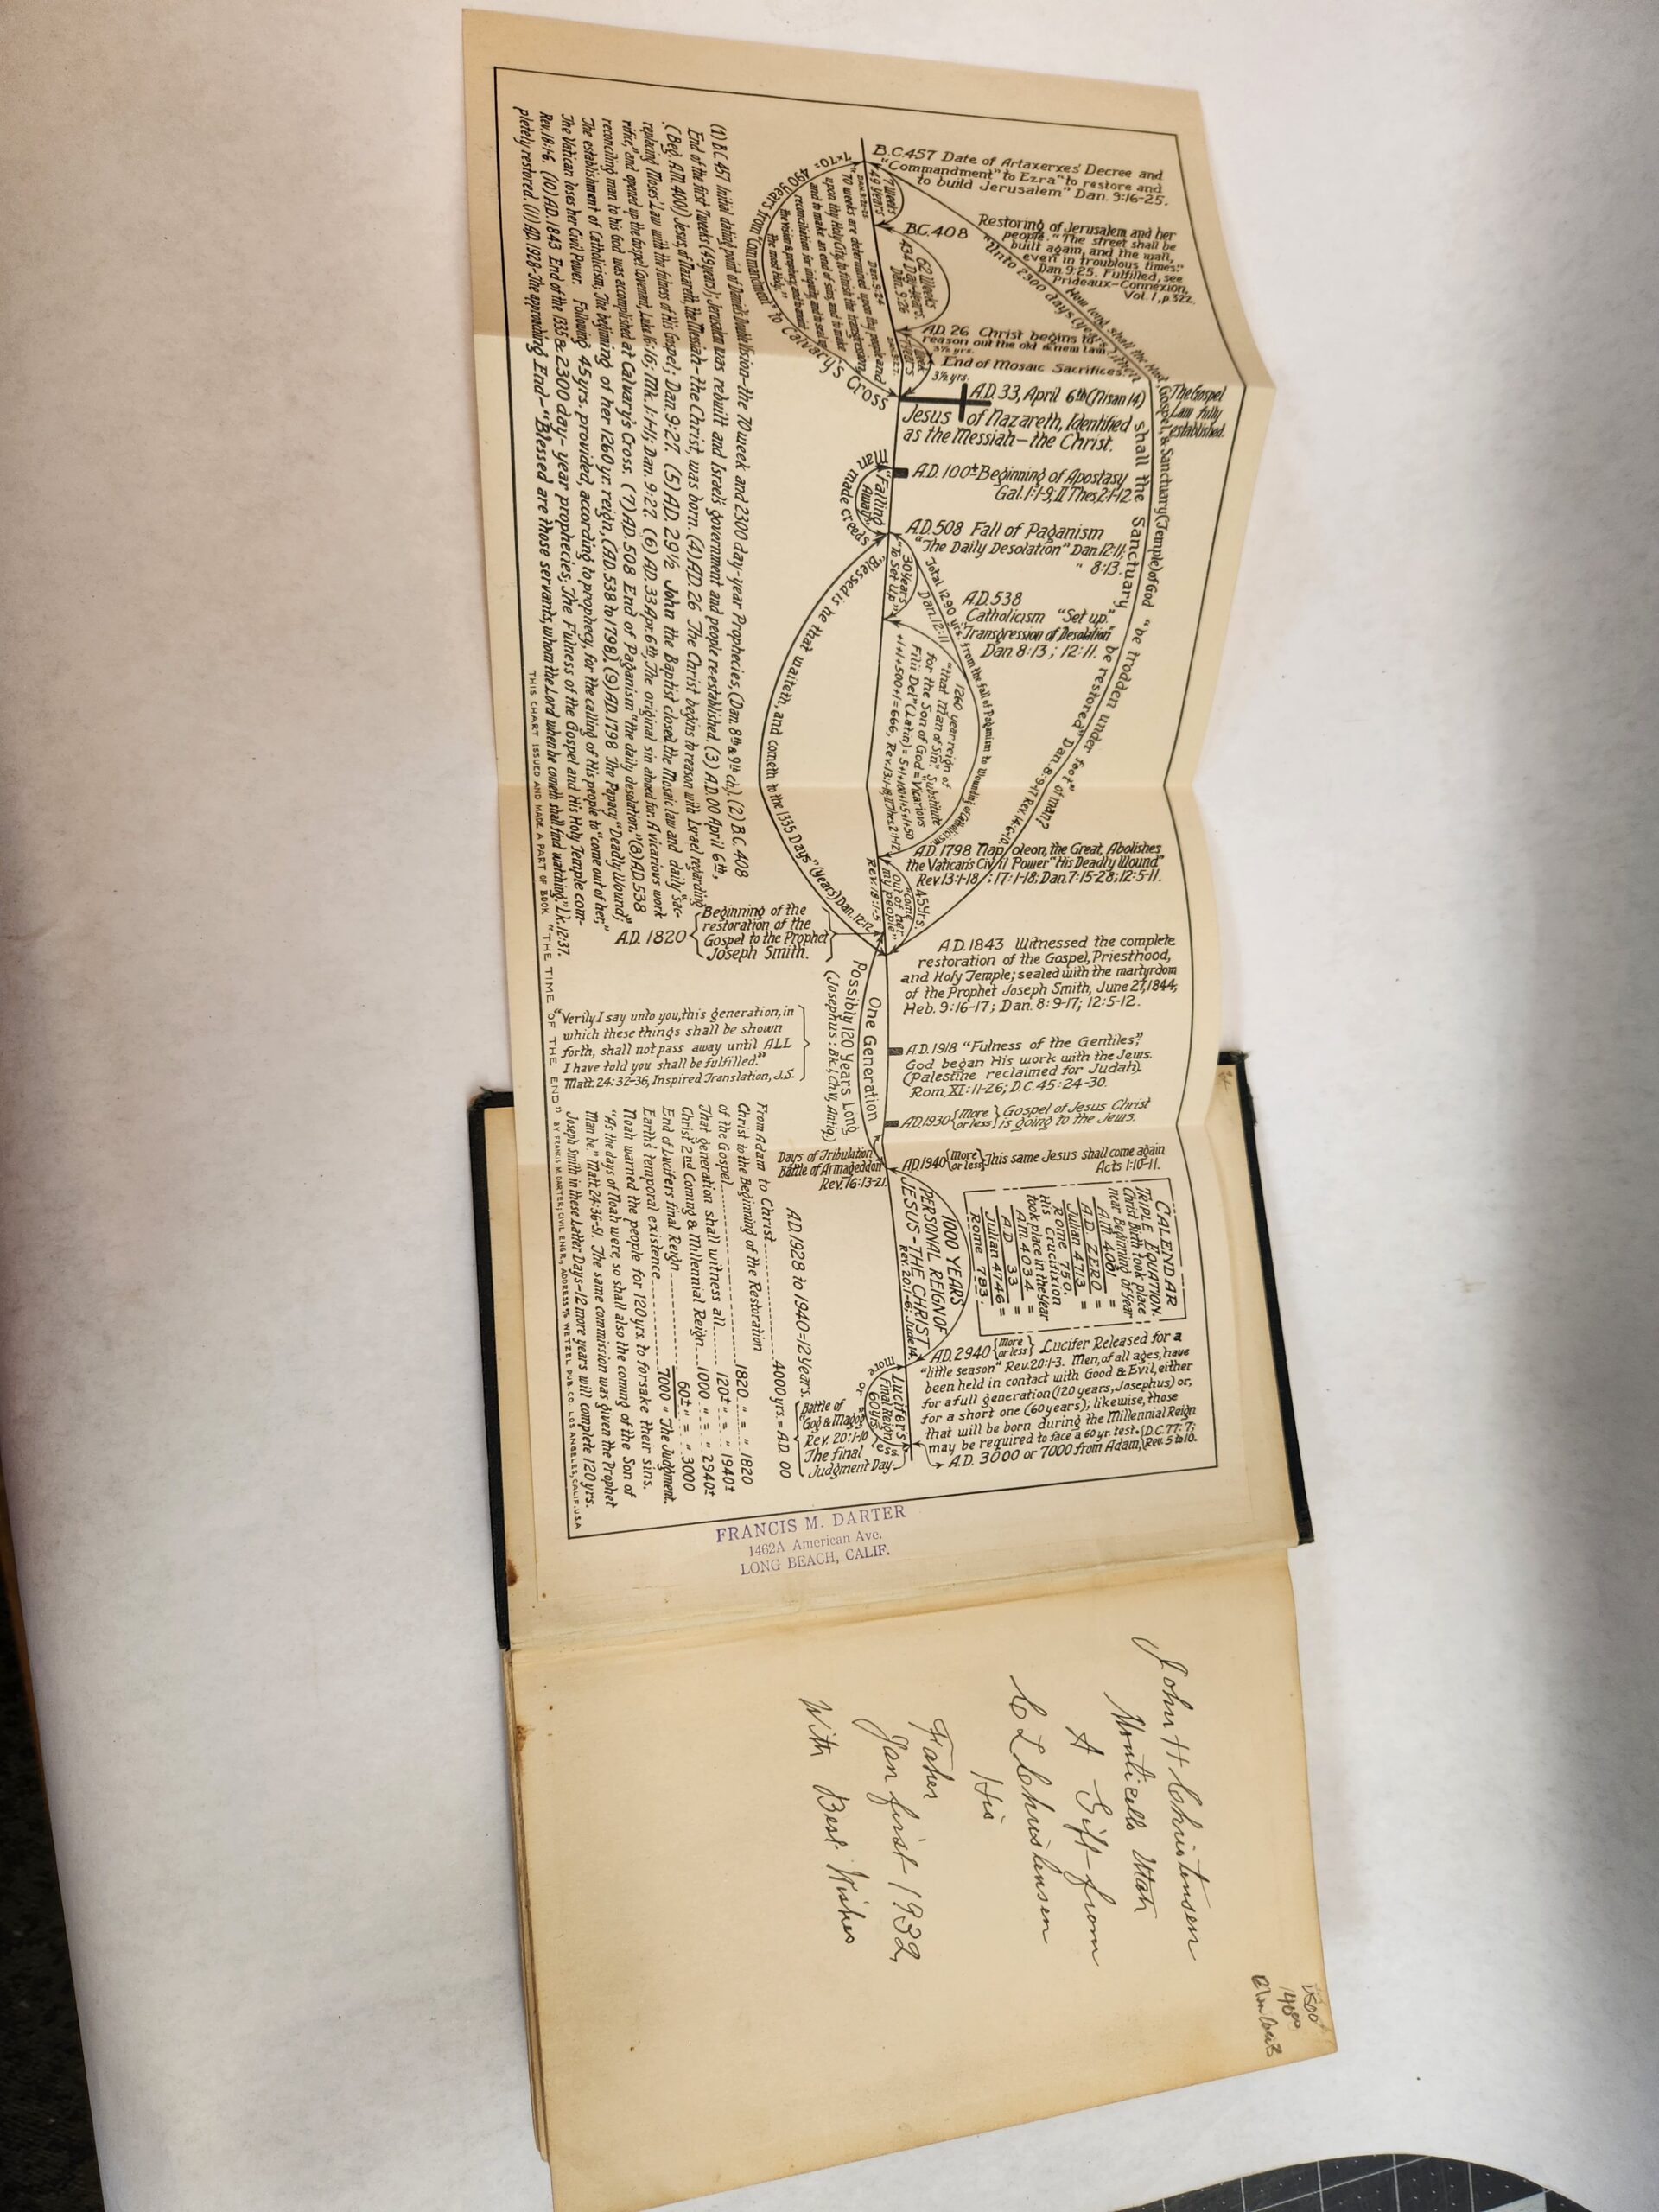 B.C. 457 Date of Artaxerxes' Decree and
"Commandment" to Ezra "to restore and
to build Jerusalem" Dan. 9:16-25.
Restoring of Jerusalem and her
people. "The street shall be
built again, and the wall,
even in troublous times."
Dan. 9:25. Fulfilled, see
Prideaux-Connexion,
Vol. 1, p 322.
"Unto 2300 days (years) then
shall the Sanctuary be restored" Dan. 8:9-17 Rev. 14:6-10.
How long shall the Host
Gospel, & Sanctuary (Temple) of God "be trodden under foot" of man?
The Gospel
Law fully
established.
7 weeks
49 years
B.C. 408
62 Weeks
434 Day-years.
Dan. 9:26
A.D. 26 Christ begins to
reason out the old & new Law.
3½ yrs.
End of Mosaic Sacrifices.
3½ yrs.
A.D. 33, April 6th (Nisan 14)
Jesus of Nazareth, Identified
as the Messiah — the Christ.
Dan. 9:24
70 weeks are determined upon thy people and
upon thy Holy City, to finish the transgression,
and to make an end of sins, and to make
reconciliation for iniquity, and to seal up
the vision & prophecy, and to anoint
the most Holy."
7x70=
490 years from "Commandment" to Calvary's Cross
A.D. 100± Beginning of Apostasy
Gal. 1:1-9, II Thes. 2:1-12.
"Falling
Away"
Man made creeds
A.D. 508 Fall of Paganism
"The Daily Desolation" Dan. 12:11;
" 8:13.
30 years
"To Set Up"
Total 1290 yrs. from the fall of Paganism to Wounding of Catholicism
Dan. 12:11
A.D. 538
Catholicism "Set up."
"Transgression of Desolation"
Dan. 8:13 ; 12:11.
1260 year reign of
"that Man of Sin." Substitute
for the Son of God = Vicarivs
Filii Dei" (Latin) = 5+1+100+1+5+1+50
+1+1+500+1 = 666, Rev. 13:1-18, II Thes. 2:1-12.
"Blessed is he that waiteth, and cometh to the 1335 Days" (Years) Dan. 12:12
A.D. 1798 Napoleon, the Great, Abolishes
the Vatican's Civil Power "His Deadly Wound"
Rev. 13:1-18 ; 17:1-18; Dan. 7:15-28; 12:5-11.
45 yrs.
"Come
Out of her,
my people"
Rev. 18:1-5
A.D. 1820 Beginning of the
restoration of the
Gospel to the Prophet
Joseph Smith.
A.D. 1843 Witnessed the complete
restoration of the Gospel, Priesthood,
and Holy Temple; sealed with the martyrdom
of the Prophet Joseph Smith, June 27, 1844;
Heb. 9:16-17; Dan. 8:9-17; 12:5-12.
A.D. 1918 "Fulness of the Gentiles;"
God began His work with the Jews.
(Palestine reclaimed for Judah).
Rom. XI:11-26; D.C. 45:24-30.
A.D. 1930 (More or less) Gospel of Jesus Christ
is going to the Jews.
One Generation
Possibly 120 Years Long
(Josephus: Bk. I, Ch. V, Antiq.)
A.D. 1940 (More or less) This same Jesus shall come again
Acts 1:10-11.
Days of Tribulation
Battle of Armageddon
Rev. 16:13-21.
1000 YEARS
PERSONAL REIGN OF
JESUS-THE CHRIST
Rev. 20:1-6; Jude 14.
CALENDAR
TRIPLE EQUATION.
Christ Birth took place
near Beginning of Year
A.M. 4001 =
A.D. ZERO =
Julian 4713 =
Rome 750.
His Crucifixion
took place in the Year
A.M. 4034 =
A.D. 33 =
Julian 4746 =
Rome 783.
A.D. 2940 (More or less) Lucifer Released for a
"little season" Rev. 20:1-3. Men, of all ages, have
been held in contact with Good & Evil, either
for a full generation (120 years, Josephus) or,
for a short one (60 years); likewise, those
that will be born during the Millennial Reign
may be required to face a 60 yr. test. (D.C. 77:7; Rev. 5 to 10.
A.D. 3000 or 7000 from Adam,
Lucifer's
Final Reign
60 yrs
more
or
less
Battle of
"Gog & Magog"
Rev. 20:1-10
The final
Judgment Day.
(1) B.C. 457 Initial dating point of Daniel's Double Vision-the 70 week and 2300 day-year Prophecies, (Dan. 8th & 9th ch.). (2) B.C. 408
End of the first 7 weeks (49 years); Jerusalem was rebuilt and Israel's government and people re-established. (3) A.D. 00 April 6th,
(Beg. A.M. 4001) Jesus, of Nazareth, the Messiah-the Christ, was born. (4) A.D. 26 The Christ begins to reason with Israel regarding
replacing Moses' Law with the fulness of His Gospel; Dan. 9:27. (5) A.D. 29½ John the Baptist closed the Mosaic law and daily "Sac-
rifice," and opened up the Gospel Covenant, Luke 16:16; Mk. 1:1-11; Dan. 9:27. (6) A.D. 33 Apr. 6th, The original sin atoned for. A vicarious work
reconciling man to his God was accomplished at Calvary's Cross. (7) A.D. 508 End of Paganism "the daily desolation." (8) A.D. 538
The establishment of Catholicism; The beginning of her 1260 yr. reign, (A.D. 538 to 1798), (9) A.D. 1798 The Papacy "Deadly Wound;"
The Vatican loses her Civil Power. Following 45 yrs. provided, according to prophecy, for the calling of His people to "come out of her,"
Rev. 18:1-6. (10) A.D. 1843 End of the 1335 & 2300 day-year prophecies; The Fulness of the Gospel and His Holy Temple com-
pletely restored. (11) A.D. 1928-The approaching End-"Blessed are those servants, whom the Lord when he cometh shall find watching," Lk. 12:37.
"Verily I say unto you, this generation, in
which these things shall be shown
forth, shall not pass away until ALL
I have told you shall be fulfilled."
Matt. 24:32-36, Inspired Translation, J.S.
A.D. 1928 to 1940 = 12 Years.
From Adam to Christ 4000 yrs. = A.D. 00
Christ to the Beginning of the Restoration
of the Gospel 1820 " = " 1820
That generation shall witness all 120± " = " 1940±
Christ 2nd Coming & Millennial Reign 1000 " = " 2940±
End of Lucifers final Reign 60± " = " 3000
Earths' temporal existence 7000 " The Judgment.
Noah warned the people for 120 yrs. to forsake their sins.
"As the days of Noah were, so shall also the coming of the Son of
Man be." Matt. 24:36-51. The same commission was given the Prophet
Joseph Smith in these Latter Days-12 more years will complete 120 yrs.
THIS CHART ISSUED AND MADE A PART OF BOOK "THE TIME OF THE END" BY FRANCIS M. DARTER, CIVIL ENGR., ADDRESS % WETZEL PUB. CO. LOS ANGELES, CALIF. U.S.A
FRANCIS M. DARTER
1462A American Ave.
LONG BEACH, CALIF.
John H Christensen
Monticello Utah
A Gift from
C L Christensen
His
Father
Jan first 1932
With Best Wishes